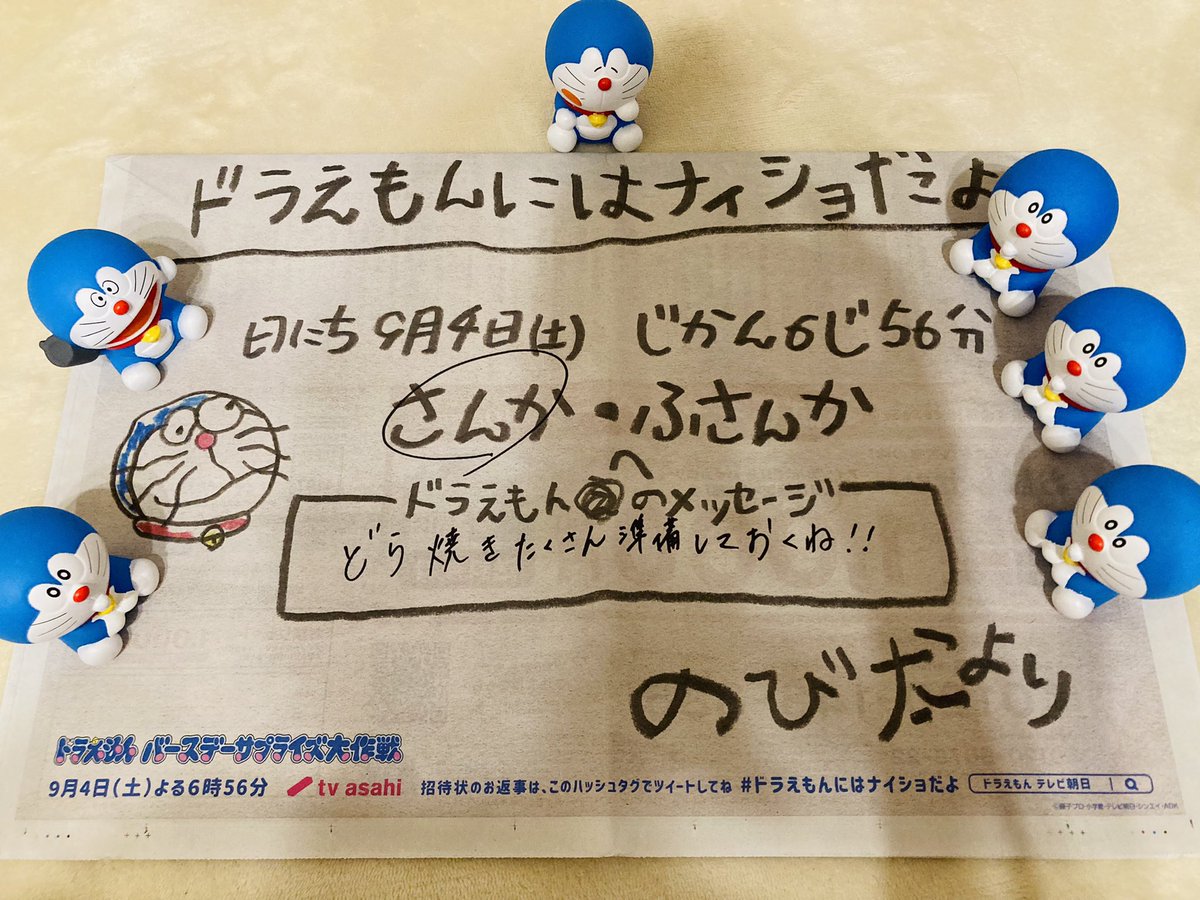 ドラえもんにはナイショだよ
日にち9月4日(土) じかん6じ56分
さんか・ふさんか
ドラえもんへのメッセージ
どら焼きたくさん準備しておくね!!
のびたより
ドラえもん バースデーサプライズ大作戦
9月4日(土)よる6時56分 tv asahi 招待状のお返事は、このハッシュタグでツイートしてね #ドラえもんにはナイショだよ ドラえもん テレビ朝日
©藤子プロ・小学館・テレビ朝日・シンエイ・ADK